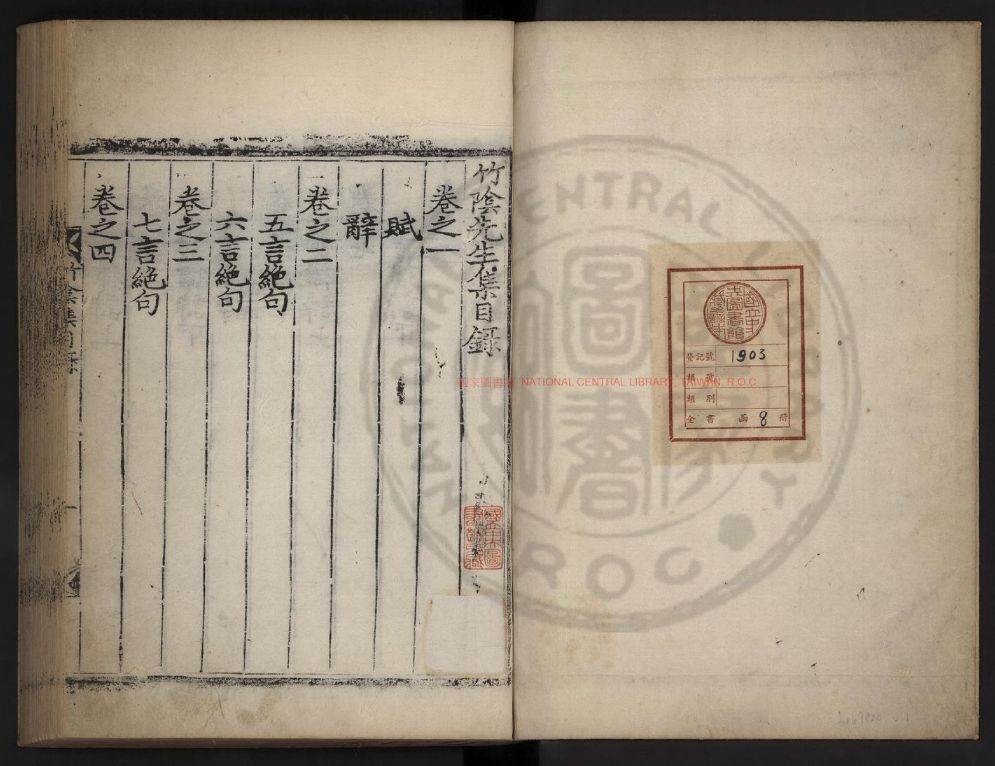 竹陰先生集目錄
卷之一
賦
辭
卷之二
五言絕句
六言絕句
卷之三
七言絕句
卷之四
竹陰集目錄
登記號 1903
類別
全書 函 8 冊
國家圖書館 NATIONAL CENTRAL LIBRARY, TAIWAN, R.O.C
圖書
R.O.C